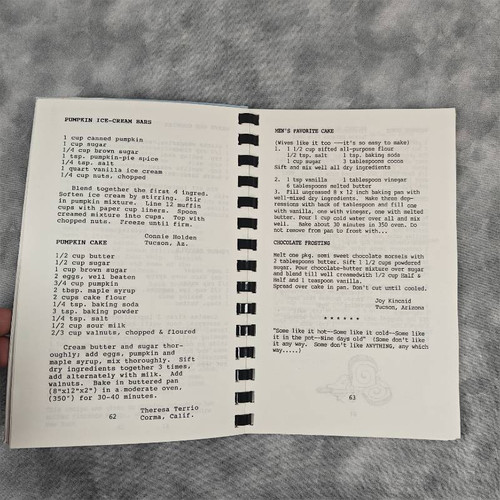 PUMPKIN ICE-CREAM BARS
1 cup canned pumpkin
1 cup sugar
1/4 cup brown sugar
1 tsp. pumpkin-pie spice
1/4 tsp. salt
1 quart vanilla ice cream
1/4 cup nuts, chopped
Blend together the first 4 ingred.
Soften ice cream by stirring. Stir
in pumpkin mixture. Line 12 muffin
cups with paper cup liners. Spoon
creamed mixture into cups. Top with
chopped nuts. Freeze until firm.
Connie Holden
Tucson, Az.
PUMPKIN CAKE
1/2 cup butter
1/2 cup sugar
1 cup brown sugar
2 eggs, well beaten
3/4 cup pumpkin
2 tbsp. maple syrup
2 cups cake flour
1/4 tsp. baking soda
3 tsp. baking powder
1/4 tsp. salt
1/2 cup sour milk
2/3 cup walnuts, chopped & floured
Cream butter and sugar thor-
oughly; add eggs, pumpkin and
maple syrup, mix thoroughly. Sift
dry ingredients together 3 times,
add alternately with milk. Add
walnuts. Bake in buttered pan
(8"x12"x2") in a moderate oven,
(350°) for 30-40 minutes.
Theresa Terrio
Corma, Calif.
62
MEN'S FAVORITE CAKE
(Wives like it too --it's so easy to make)
1. 1 1/2 cup sifted all-purpose flour
1/2 tsp. salt 1 tsp. baking soda
1 cup sugar 3 tablespoons cocoa
Sift and mix well all dry ingredients
2. 1 tsp vanilla 1 tablespoon vinegar
6 tablespoons melted butter
3. Fill ungreased 8 x 12 inch baking pan with
well-mixed dry ingredients. Make three dep-
ressions with back of tablespoon and fill one
with vanilla, one with vinegar, one with melted
butter. Pour 1 cup cold water over all and mix
well. Bake about 30 minutes in 350 oven. Do
not remove from pan to frost with...
CHOCOLATE FROSTING
Melt one pkg. semi sweet chocolate morsels with
2 tablespoons butter. Sift 1 1/2 cups powdered
sugar. Pour chocolate-butter mixture over sugar
and blend till well creamedwith 1/2 cup half &
Half and 1 teaspoon vanilla.
Spread over cake in pan. Don't cut until cooled.
Joy Kincaid
Tucson, Arizona
* * * * * *
"Some like it hot--Some like it cold--Some like
it in the pot--Nine days old" (Some don't like
it any way. Some don't like ANYTHING, any which
way.....)
63